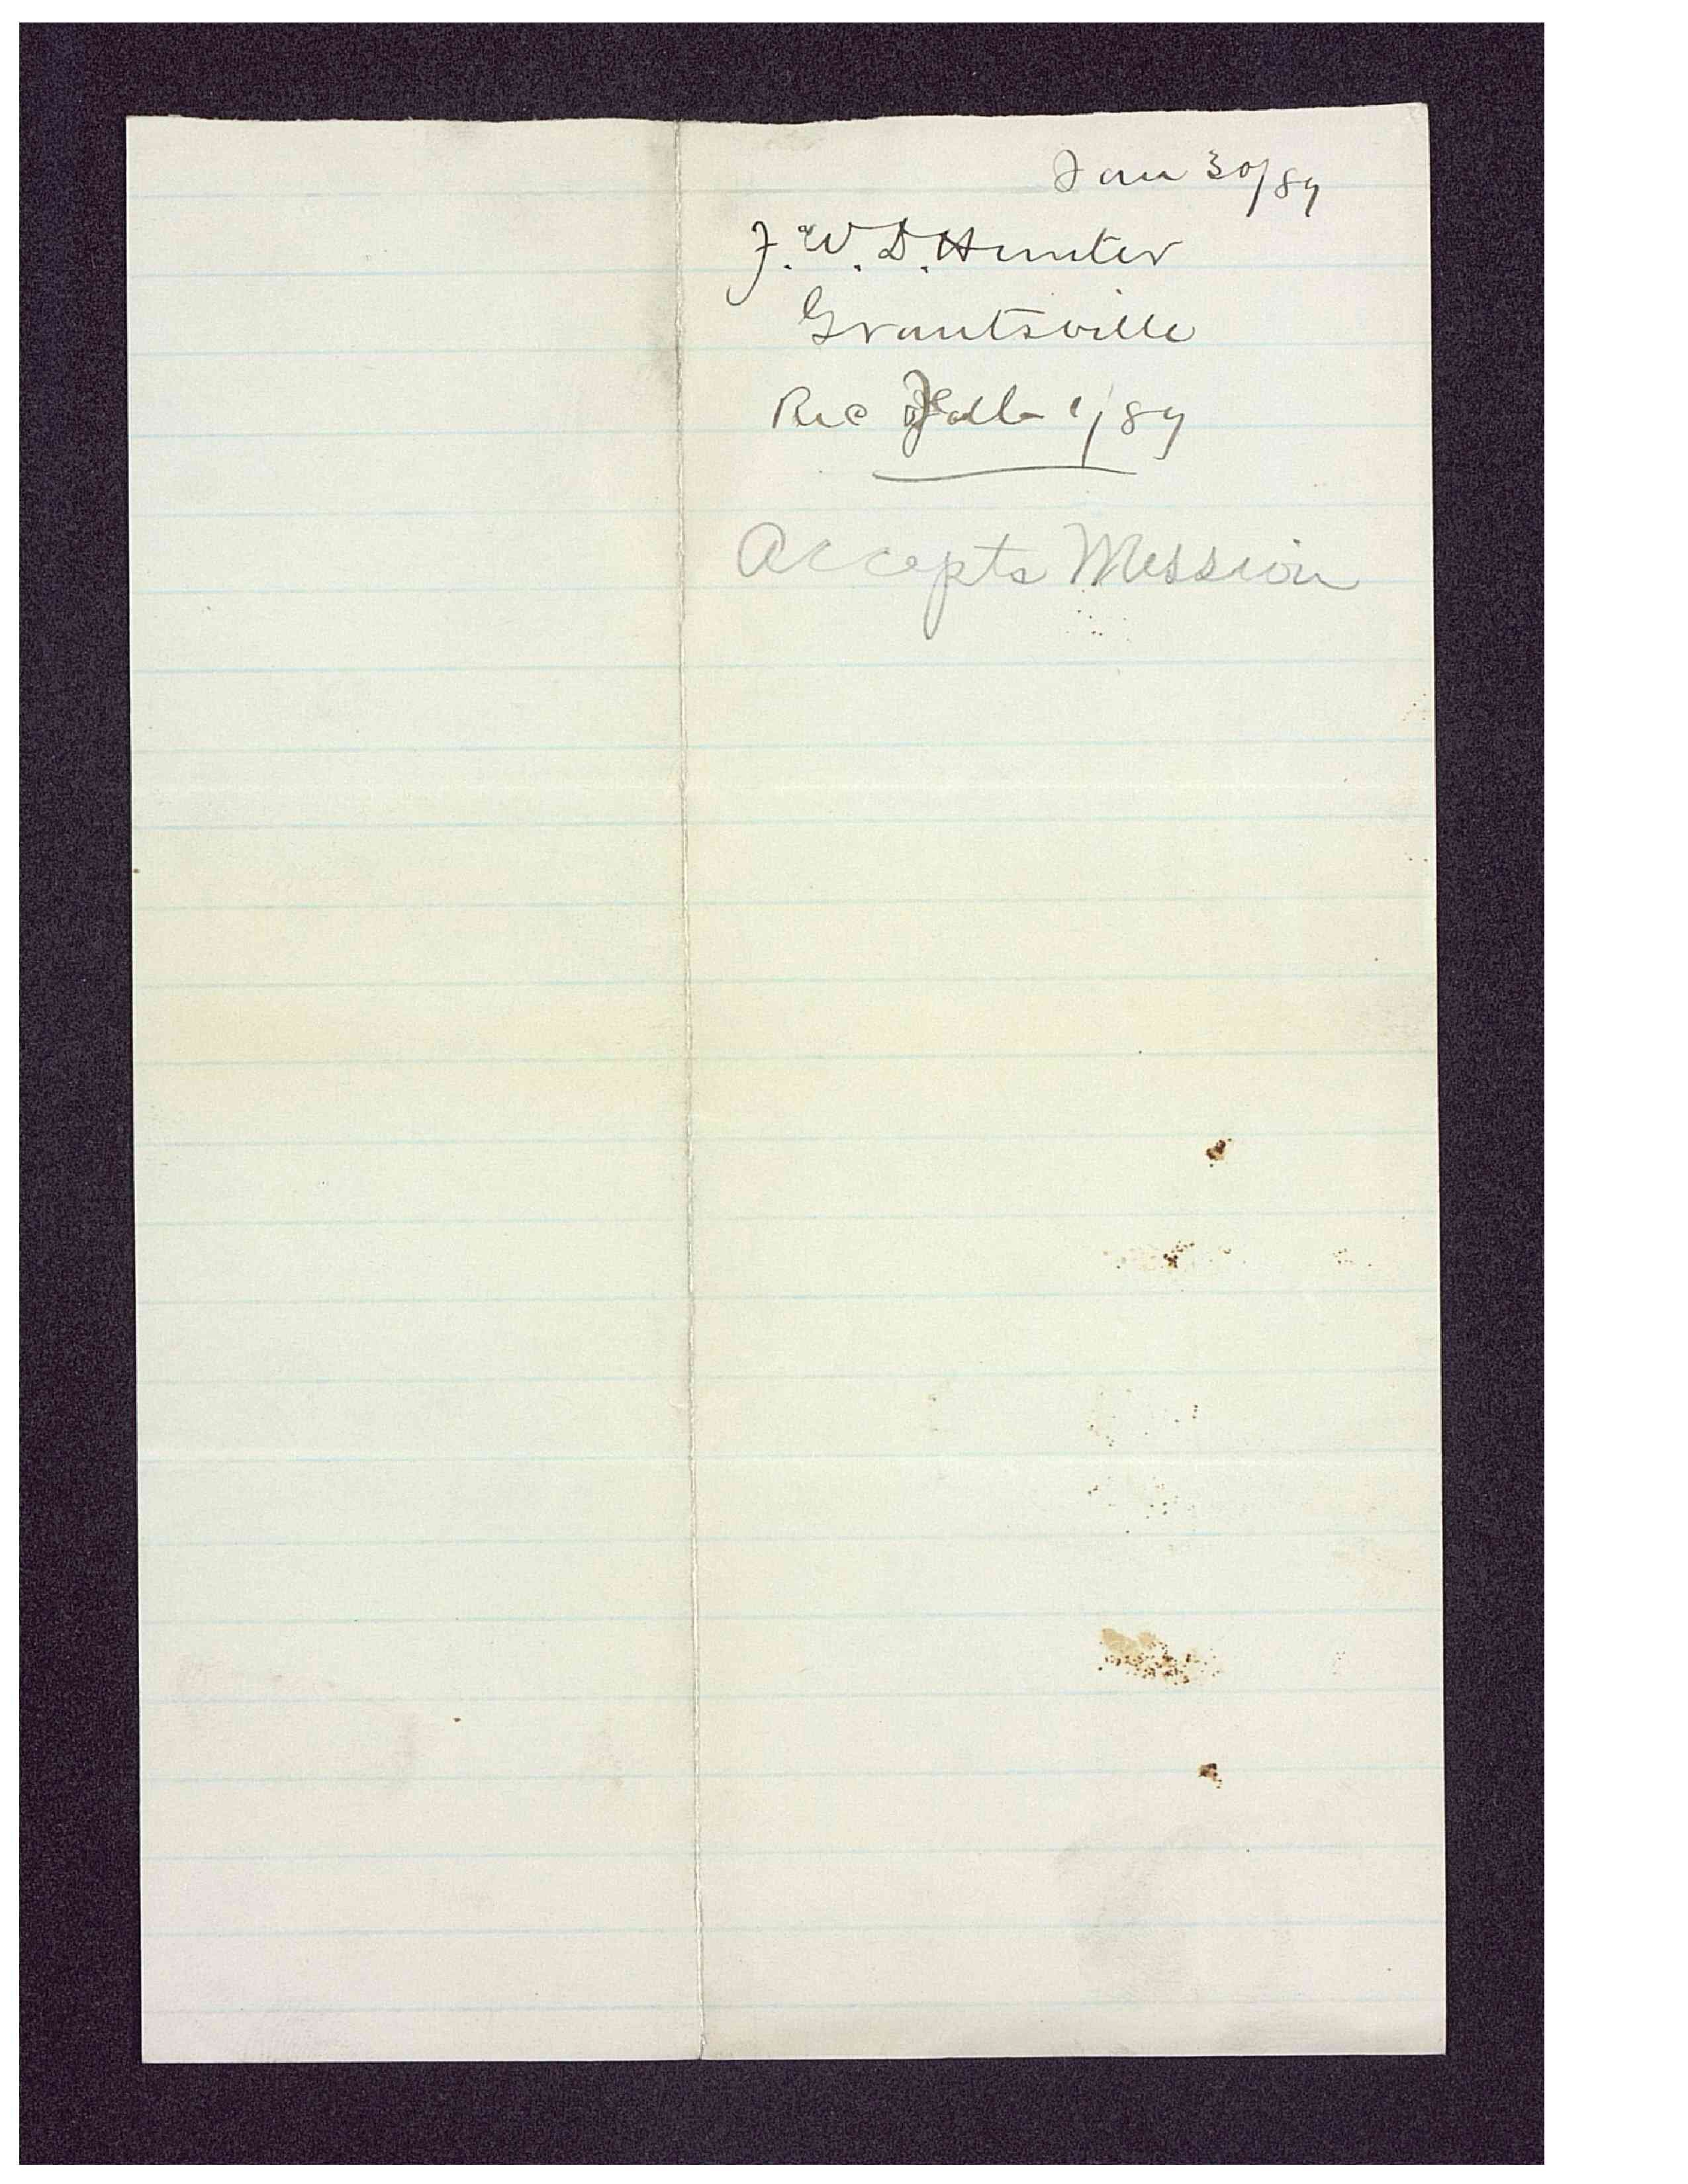 Jan 30/89
J. W. D. Hunter
Grantsville
Rec Feb 1/89
Accepts Mission